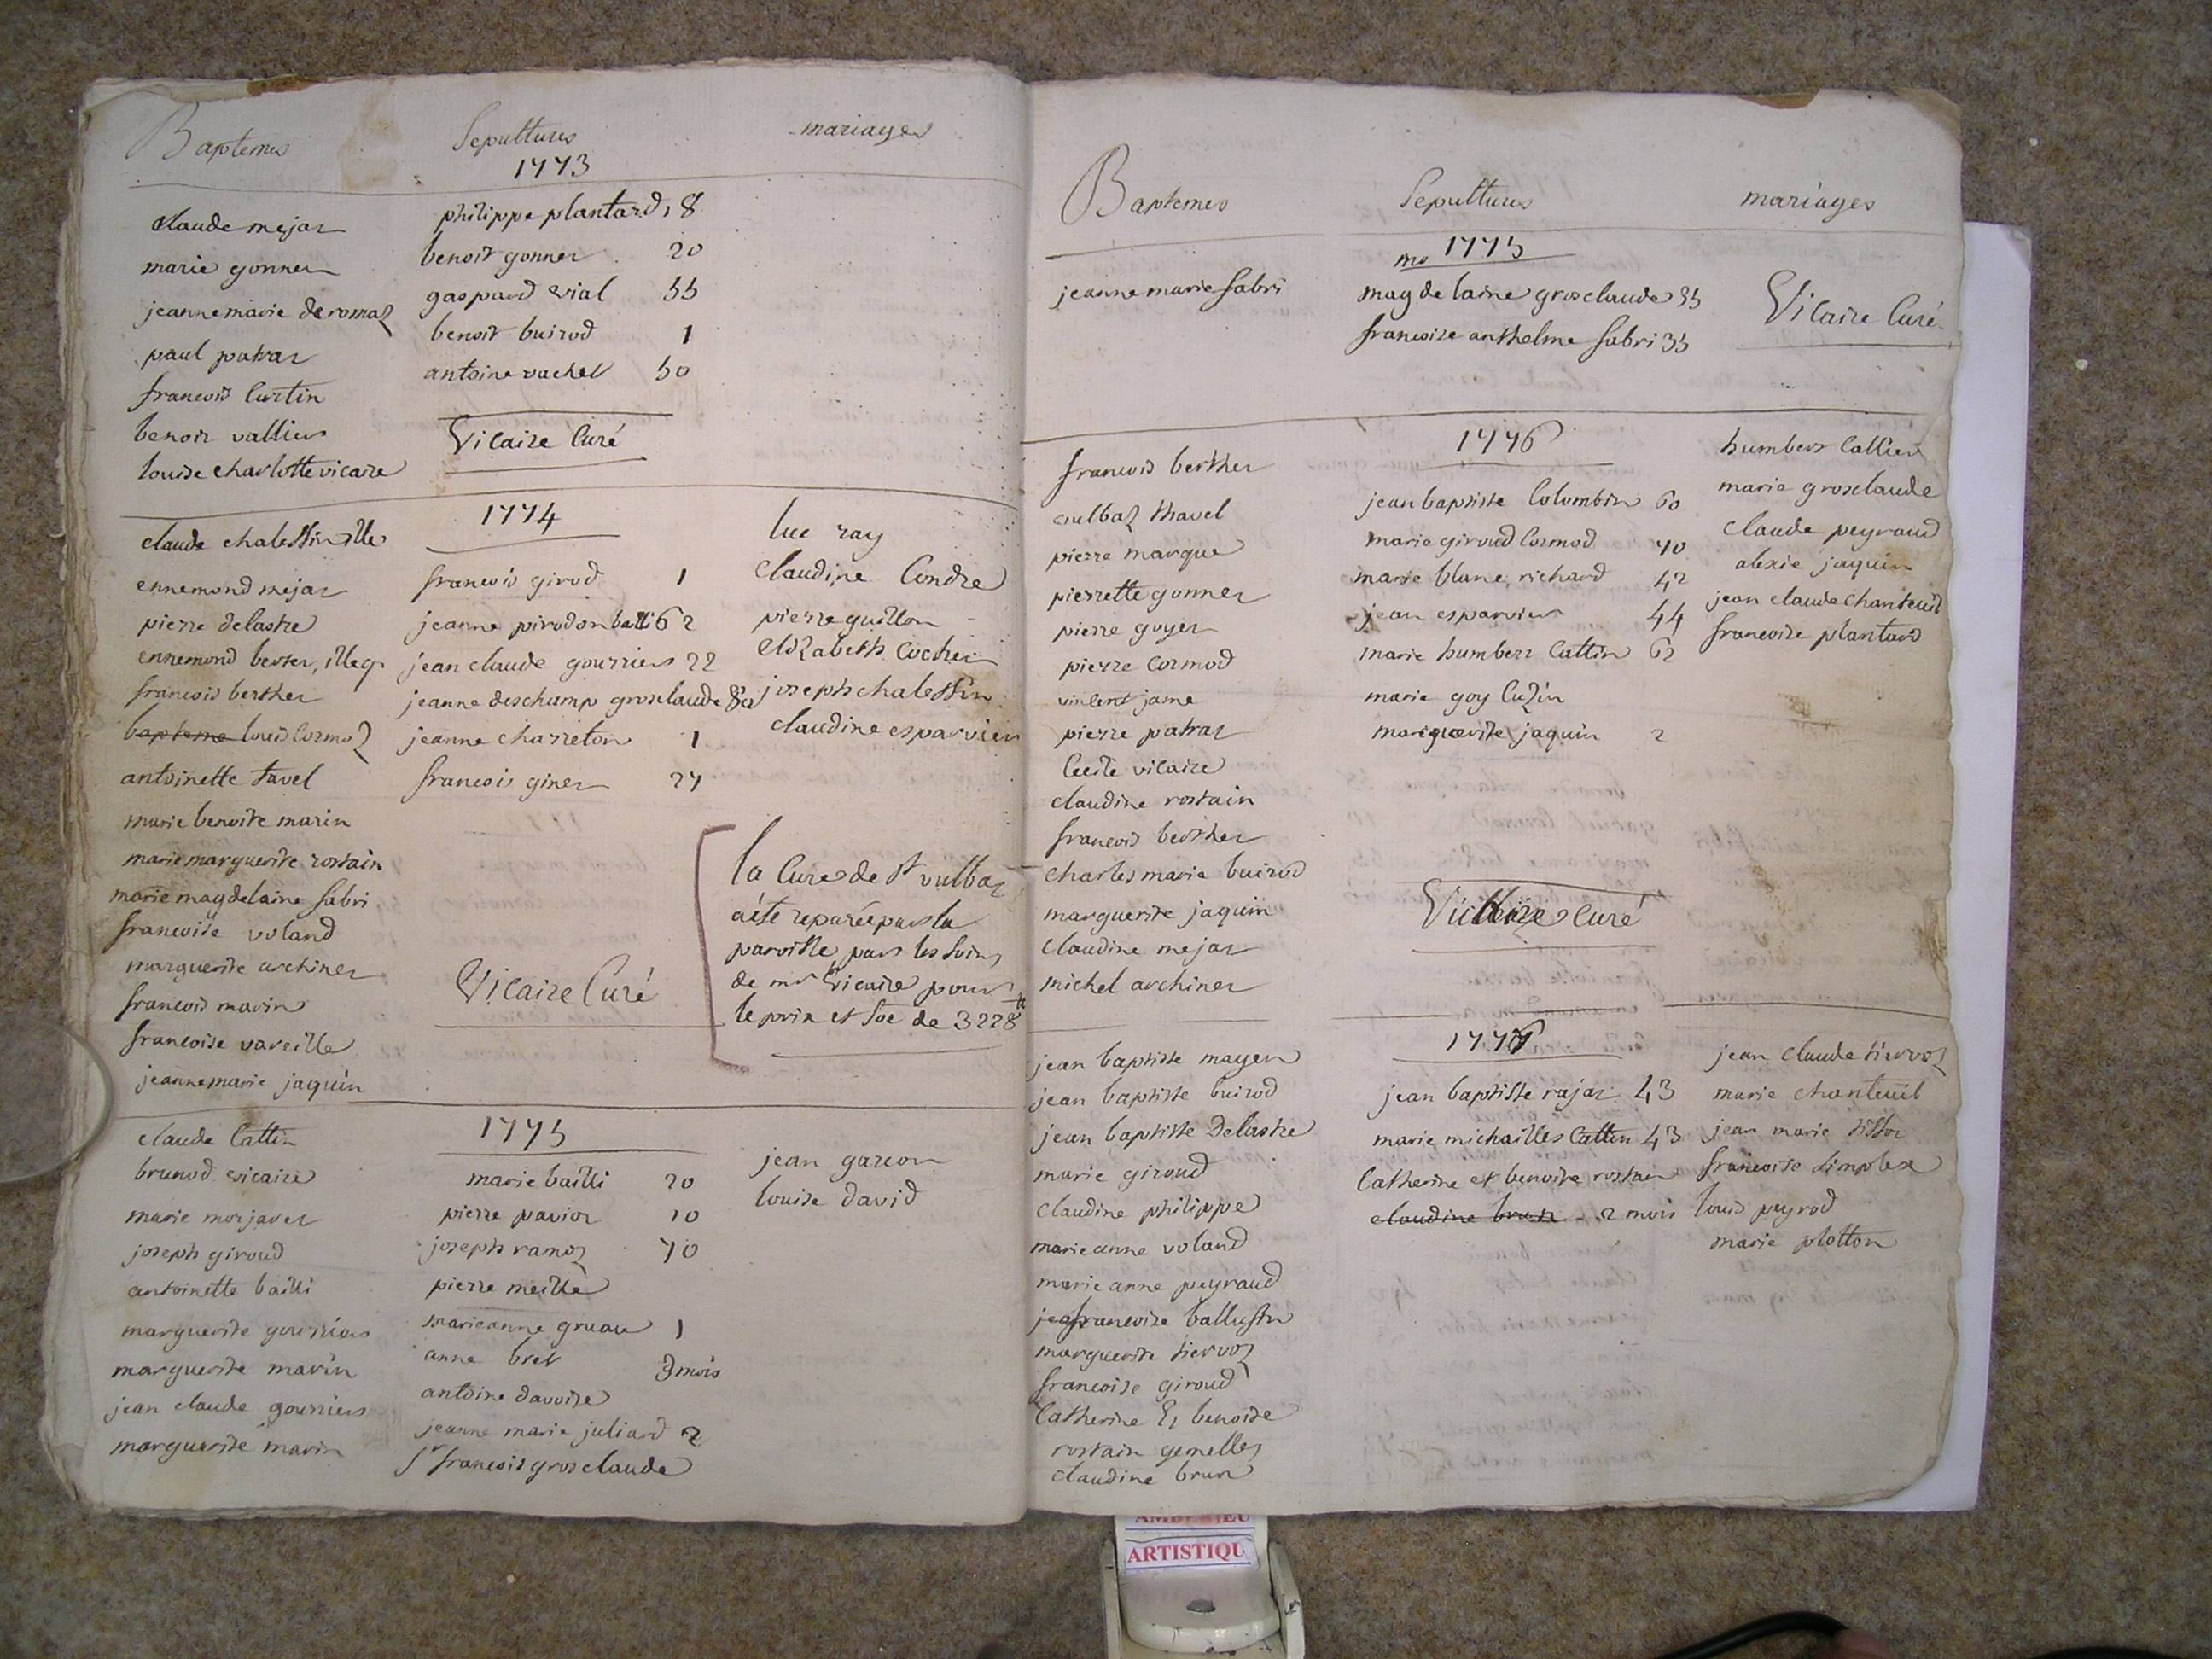 Baptemes
claude mejat
marie gonnet
jeanne marie deromas
paul patras
francois Curtin
benoit vallier
louise charlotte vicaire
Sepultures
1773
philippe plantard, 8
benoit gonnet 20
gaspard vial 55
benoit buirod 1
antoine vachet 50
Vicaire Curé
mariages
claude chalessin ille
ennemond mejat
pierre delastre
ennemond berter, illeg.
francois berthet
bapteme louis Cormoz
antoinette tavel
marie benoite marin
marie marguerite rostain
marie magdelaine fabri
francoise voland
marguerite archinet
francois marin
francoise vareille
jeanne marie jaquin
1774
francois girod 1
jeanne pirodon 62
jean claude gourrier 22
jeanne deschamp grosclaude 80
jeanne charreton 1
francois ginet 27
Vicaire Curé
luc ray
Claudine Condre
pierre guillon
Elizabeth Cochet
joseph chalessin
claudine esparvier
la Cure de St vulbas
a été reparée par la
paroisse par les soins
de mr Vicaire pour
le prix et de 3228 ᵗᵗ
claude Cattin
brunod vicaire
marie morjavet
joseph giroud
antoinette bailli
marguerite gourriers
marguerite marin
jean claude gourriers
marguerite marin
1775
marie bailli 20
pierre pavior 10
joseph ramoz 70
pierre meille
marieanne gruau 1
anne bret 3 mois
antoine davoise
jeanne marie juliard 2
Sr francois grosclaude
jean garcon
louise david
Baptemes
jeanne marie fabri
Sepultures
1775
magdelaine grosclaude 35
francoise anthelme fabri 35
mariages
Vicaire Curé
francois berthet
vulbaz thavel
pierre marque
pierrette gonnet
pierre goyet
pierre Cormod
vincent jame
pierre patras
Cecile vicaire
claudine rostain
francois berthet
charles marie buirod
marguerite jaquin
claudine mejat
michel archinet
1776
jean baptiste Colombin 60
marie giroud Cormod 70
marie blanc, richard 42
jean esparvier 44
marie humbert Cattin 62
marie goy Cuzin
marguerite jaquin 2
Vicaire Curé
humbert Callier
marie grosclaude
Claude peyraud
alexie jaquin
jean claude Chanteuil
francoise plantard
jean baptiste mayen
jean baptiste buirod
jean baptiste Delastre
marie giroud
claudine philippe
marieanne voland
marie anne peyraud
francoise ballustre
marguerite tiervoz
francoise giroud
Catherine Et benoite
rostain gemelles
claudine brun
1777
jean baptiste rajat 43
marie michailles Cattin 43
Catherine et benoite rostain
claudine brun 2 mois
jean claude tiervoz
marie chanteuil
jean marie tissot
francoise simplex
louis peyrod
marie plotton
ARTISTIQU